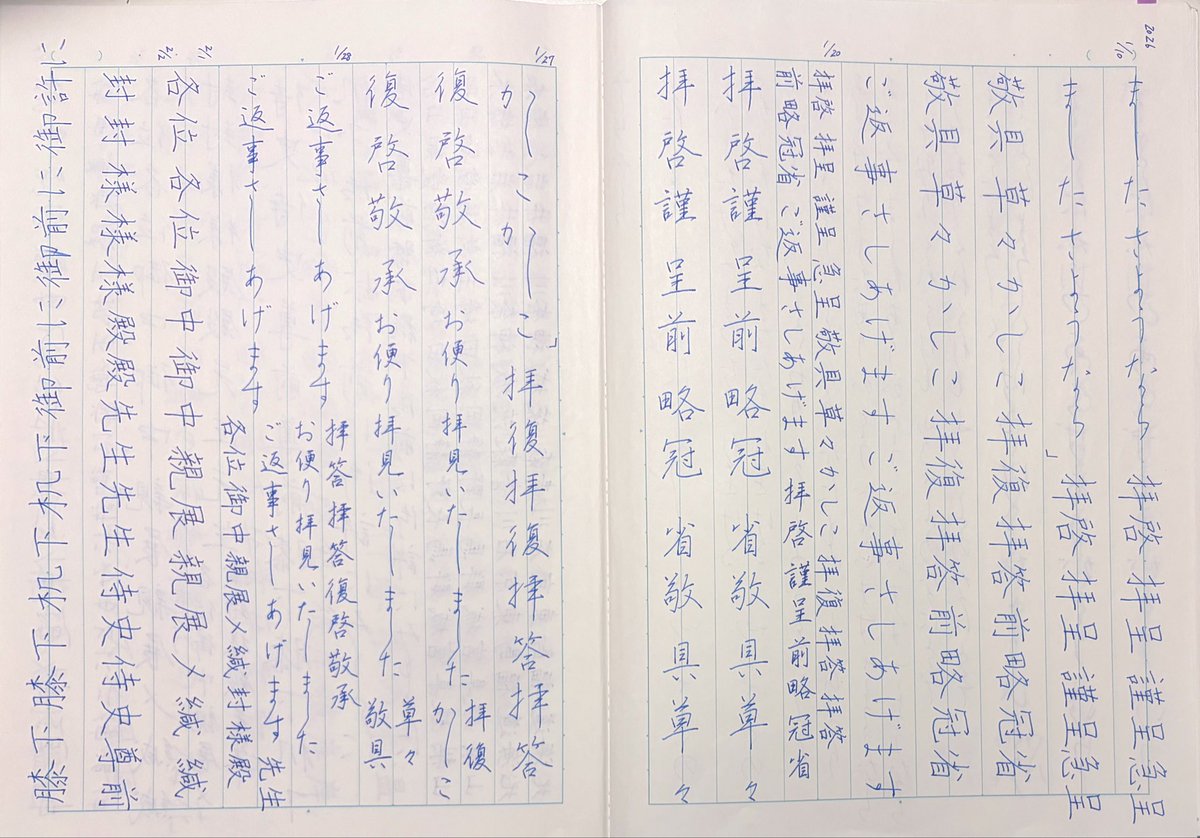 2026
1/10
拝啓拝呈謹呈急呈
」拝啓拝呈謹呈急呈
敬具草々かしこ拝復拝答前略冠省
敬具草々かしこ拝復拝答前略冠省
ご返事さしあげますご返事さしあげます
1/20
拝啓拝呈謹呈急呈敬具草々かしこ拝復拝答拝答
前略冠省ご返事さしあげます拝啓謹呈前略冠省
拝啓謹呈前略冠省敬具草々
拝啓謹呈前略冠省敬具草々
1/27
かしこかしこ」拝復拝復拝答拝答
復啓敬承お便り拝見いたしました拝復
かしこ
復啓敬承お便り拝見いたしました草々
敬具
1/28
ご返事さしあげます
拝答拝答復啓敬承
お便り拝見いたしました
ご返事さしあげます
ご返事さしあげます先生
各位御中親展〆緘封様殿
2/1
各位各位御中御中親展親展〆緘緘
2/2
封封様様様殿殿先生先生侍史侍史尊前
膝下膝下机下机下御前に御前に御許に